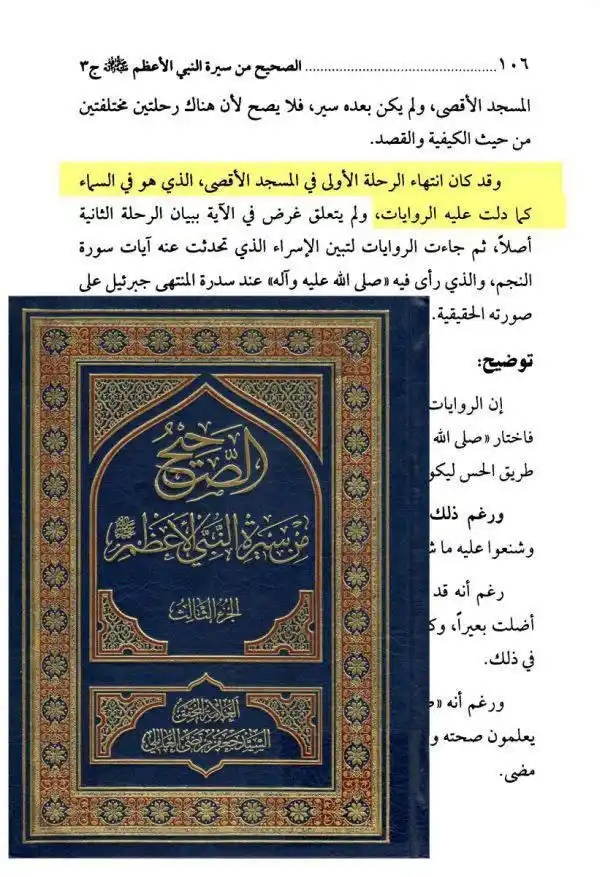 ١٠٦ ................................................ الصحيح من سيرة النبي الأعظم ﷺ ج٣
المسجد الأقصى، ولم يكن بعده سير، فلا يصح لأن هناك رحلتين مختلفتين
من حيث الكيفية والقصد.
وقد كان انتهاء الرحلة الأولى في المسجد الأقصى، الذي هو في السماء
كما دلت عليه الروايات، ولم يتعلق غرض في الآية ببيان الرحلة الثانية
أصلاً، ثم جاءت الروايات لتبين الإسراء الذي تحدثت عنه آيات سورة
النجم، والذي رأى فيه «صلى الله عليه وآله» عند سدرة المنتهى جبرئيل على
صورته الحقيقية.
توضيح:
إن الروايات
فاختار «صلى الله
طريق الحس ليكو
ورغم ذلك
وشنعوا عليه ما ش
رغم أنه قد
أضلت بعيراً، وك
في ذلك.
ورغم أنه «ص
يعلمون صحته و
مضى.
الصحيح
من سيرة النبي الأعظم ﷺ
الجزء الثالث
العلامة المحقق
السيد جعفر مرتضى العاملي